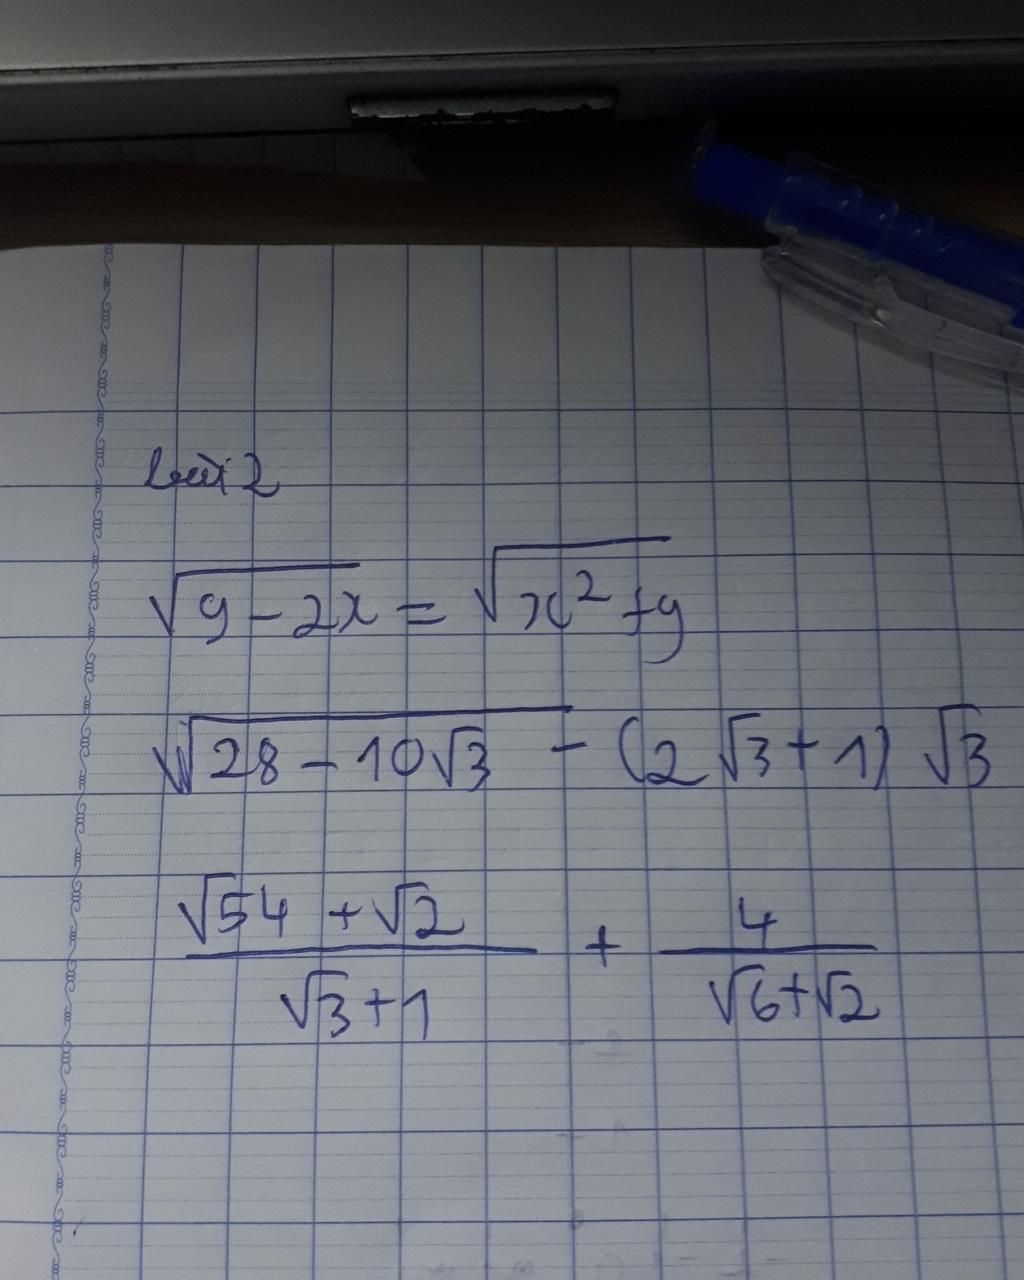 bài 2
√(9 - 2x) = √(x² + 9)
√(28 - 10√3) - (2√3 + 1) √3
(√54 + √2)/(√3 + 1) + 4/(√6 + √2)